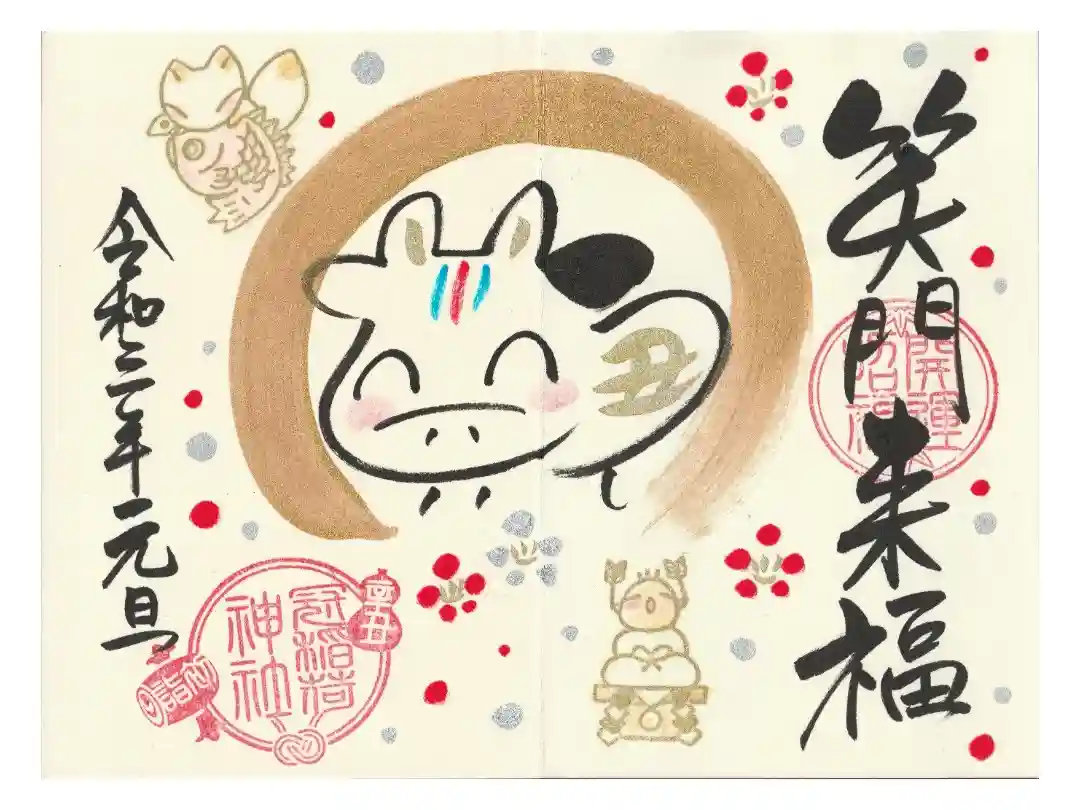 笑門来福
開運
招福
丑
令和三年元旦
冠稲荷
神社
初詣